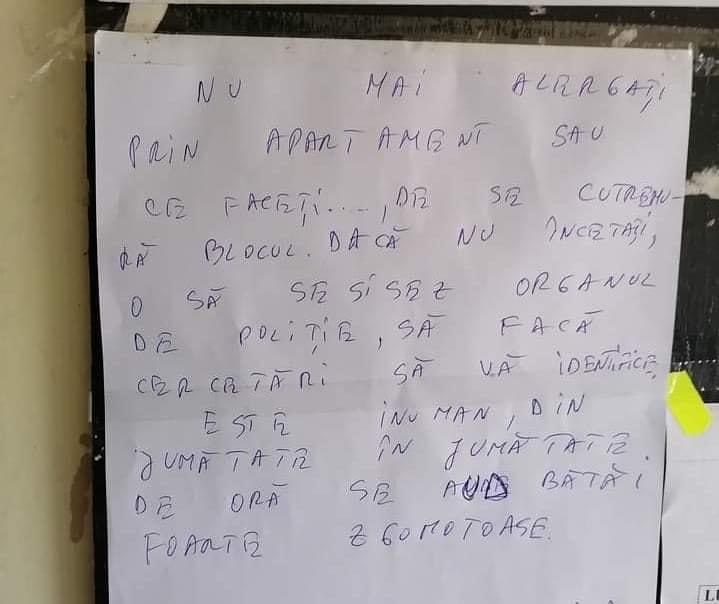 NU MAI ALERGAȚI
PRIN APARTAMENT SAU
CE FACEȚI...., DE SE CUTREMU-
RĂ BLOCUL. DACĂ NU ÎNCETAȚI,
O SĂ SESISEZ ORGANUL
DE POLIȚIE, SĂ FACĂ
CERCETĂRI SĂ VĂ IDENTIFICE.
ESTE INUMAN, DIN
JUMĂTATE ÎN JUMĂTATE
DE ORĂ SE AUD BĂTĂI
FOARTE ZGOMOTOASE.